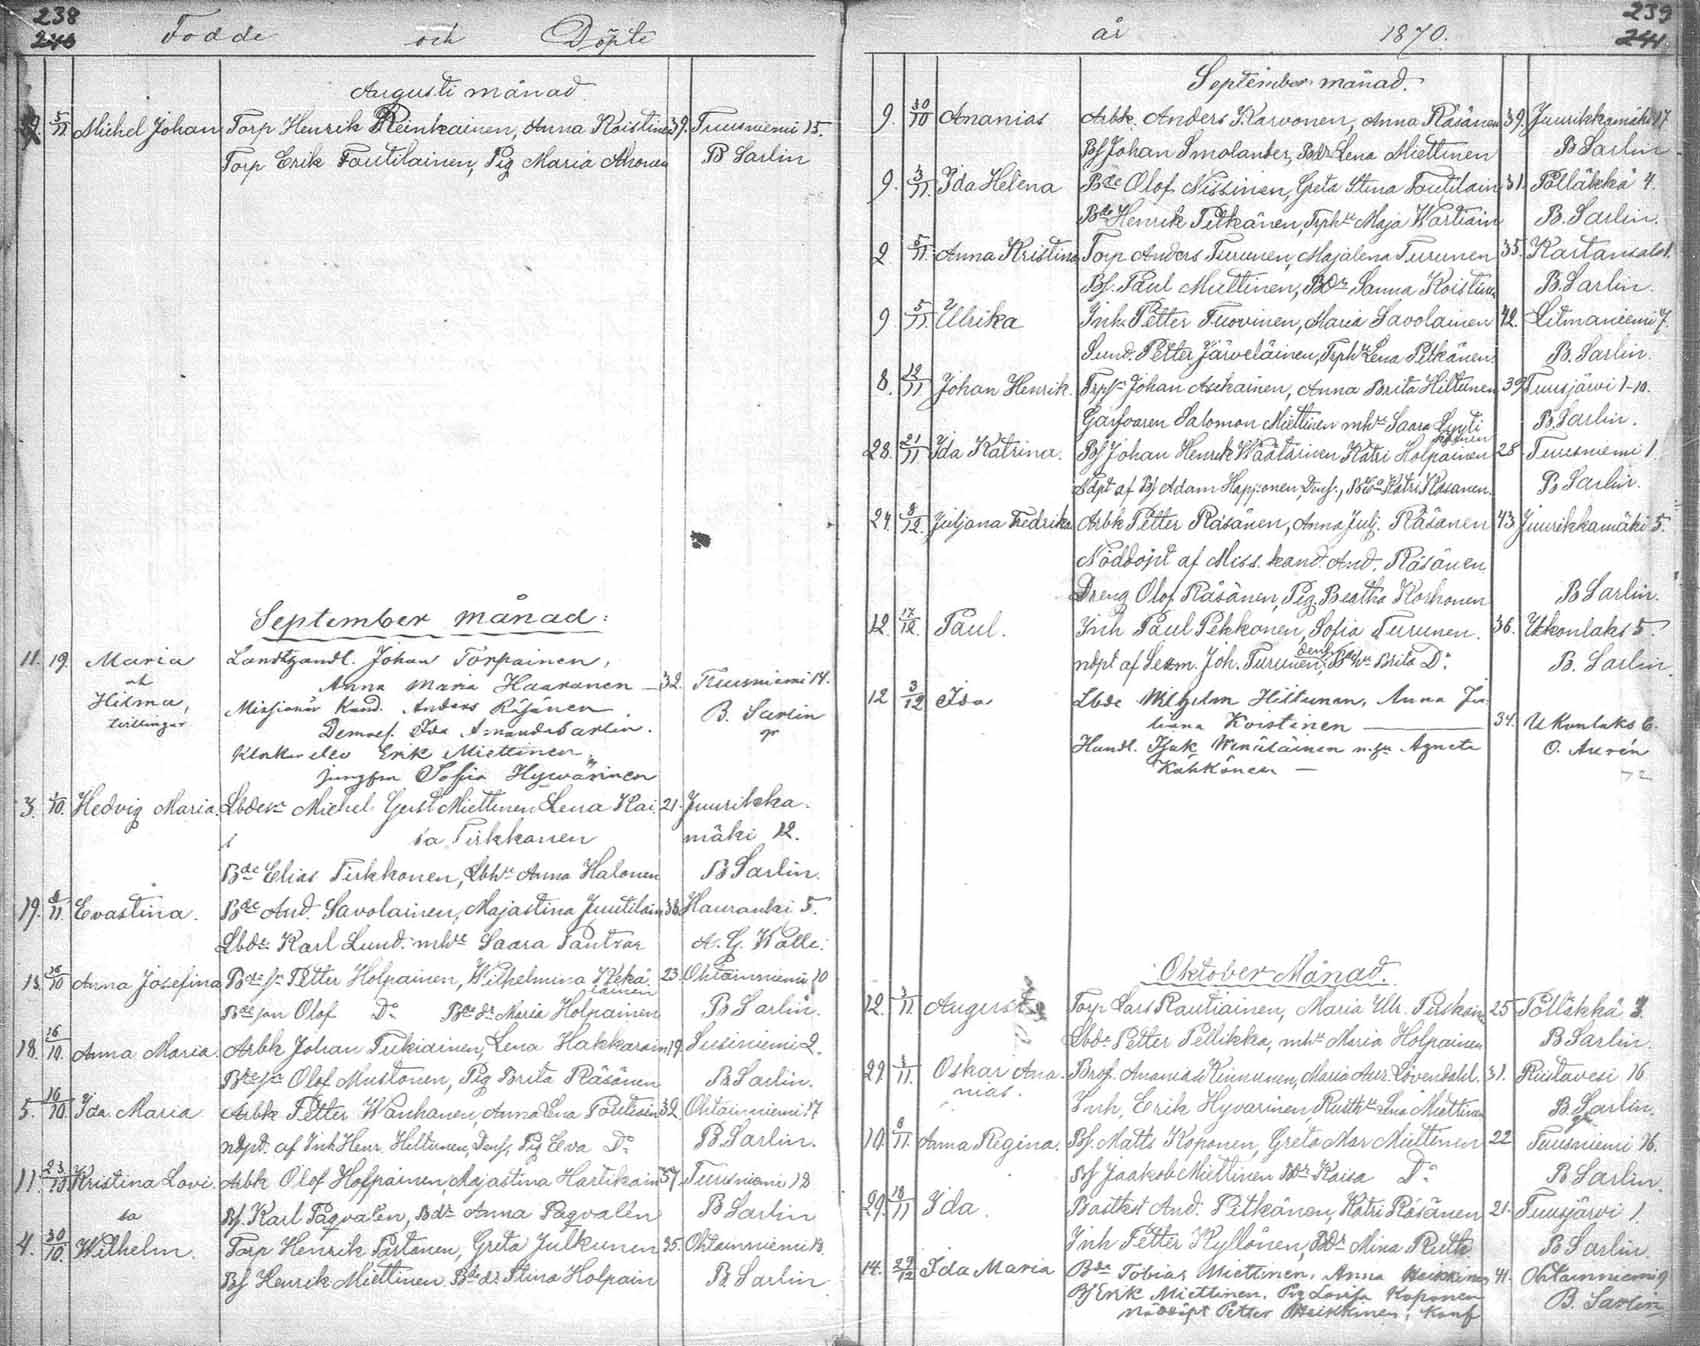 238
240
Födde och Döpte
Augusti månad
5/11 Michel Johan Torp Henrik Reinikainen, Anna Koistinen 37. Tuusniemi 15.
Torp Erik Tautilainen, Pig Maria Ahonen B Sarlin
September månad:
11. 19. Maria Landtzandl. Johan Törpainen,
och Anna Maria Haaranen — 32. Tuusniemi 14.
Hilma, Missionär Kand. Anders Räsänen B. Sarlin
tvillingar Demois. Ida Amanda Sarlin.
Klockar elev Erik Miettinen,
jungfru Sofia Hyvärinen
3. /10. Hedvig Maria. Lbdesr Michel Gust Miettinen Lena Kai 21. Juurikka-
sa Tirkkonen mäki 12.
Bde Elias Tirkkonen, Lbhr Anna Halonen B Sarlin.
19. 8/11. Evastina. Bde And. Savolainen, Majastina Juutilain 38. Hauranki 5.
Lbdr. Karl Lund. mhr Saara Pantsar A. G. Walle.
13. 16/10 Anna Josefina Bde sr Petter Holpainen, Wilhelmina Keka 23. Ohtainniemi 10
lainen
Bde son Olof Do Bde dr Maria Holpainen B Sarlin.
18. 16/10. Anna Maria. Arbk Johan Tukiainen, Lena Hakkarain 19. Susiniemi 2.
Bde sr Olof Mustonen, Pig Brita Räsänen B. Sarlin.
5. 16/10. Ida Maria Arbk Petter Wanhanen, Anna Lena Poutiain 32. Ohtainniemi 17
ndpt. af Inh Henr. Hiltunen, Dens, Pig Eva Do B. Sarlin.
11. 23/10. Kristina Lovi- Arbk Olof Holpainen, Majastina Hartikain 37. Tuusniemi 12
sa Bf. Karl Pagvalen, Bdr Anna Pagvalén B Sarlin
4. 30/10. Wilhelm. Torp Henrik Partanen, Greta Julkunen 35. Ohtainniemi 13.
Bf Henrik Miettinen. Bde dr Stina Holpain B Sarlin
239
241
år 1870.
September månad.
9. 30/10 Ananias Arbk. Anders Karvonen, Anna Räsänen 39. Juurikkamäki 17
Bf Johan Smolander, Bdr Lena Miettinen B Sarlin
9. 3/11. Ida Helena Bde Olof Nissinen, Greta Stina Tautilain 31. Pölläkkä 4.
Bde Henrik Pitkänen, Trphr Maja Wartiain B. Sarlin.
2 5/11. Anna Kristina Torp Anders Turunen, Majalena Turunen 35. Kartansalo 1.
Bf. Paul Miettinen, Bdr Sanna Koistinen B. Sarlin.
9 5/11. Ulrika Inh. Petter Tuovinen, Maria Savolainen 42. Litmaniemi 7.
Lund. Petter Järveläinen, Trphr Lena Pitkänen. B. Sarlin.
8. 12/11 Johan Henrik. Trpsr Johan Asikainen, Anna Brita Hiltunen 39 Tuusjärvi 1-10.
Garfvaren Salomon Miettinen mhr Saara Lyyti B. Sarlin.
käinen
28. 21/11. Ida Katrina. Bf Johan Henrik Wäätäinen Katri Holpainen 28 Tuusniemi 1.
Ndpt af Bf Adam Happonen, Dens., Katri Kosanen. B. Sarlin.
24. 3/12. Juljana Fredrika Arbk Petter Räsänen, Anna Julj. Räsänen 43 Juurikkamäki 5.
Nöddöpt af Miss. kand. And. Räsänen
Dreng Olof Räsänen, Pig Beatha Korhonen B Sarlin.
12. 17/12. Paul. Inh Paul Pekkonen, Sofia Turunen. 36. Ukonlaks 5.
ndpt af Sexm. Joh. Turunen, dens. Brita Do B. Sarlin
12 3/12 Ida Lbde Wilhelm Hiltunen, Anna Ju-
liana Koistinen —— 34. Ukonlaks 6.
Handl. Isak Wenäläinen m. fr. Agneta O. Aurén
Kahkönen —
Oktober Månad.
12. 3/11 August Torp Lars Rautiainen, Maria Ulr. Puskain 25 Pölläkkä 3.
Lbdr Petter Pellikka, mhr Maria Holpainen B Sarlin.
29. 3/11. Oskar Ana- Prof. Ananias Kinnunen, Maria Aur. Lövendahl. 31. Ristavesi 16
nias. Inh, Erik Hyvarinen Rusthr Lena Miettinen B. Sarlin.
10. 6/11. Anna Regina. Bf. Matts Koponen, Greta Mar Miettinen 22 Tuusniemi 16.
Bf Jaakob Miettinen Bdr Kaisa Do B Sarlin.
29. 19/11 Ida. Backst And. Pitkänen, Katri Räsänen 21. Tuusjärvi 1.
Inh Petter Kyllönen, Bdr Mina Ruth B Sarlin.
14. 29/12 Ida Maria Bde Tobias Miettinen, Anna Heikkinen 41. Ohtainniemi 9
Bf Erik Miettinen. Pig Lovisa Koponen B. Sarlin
Nöddöpt Petter Heikkinen, Konf